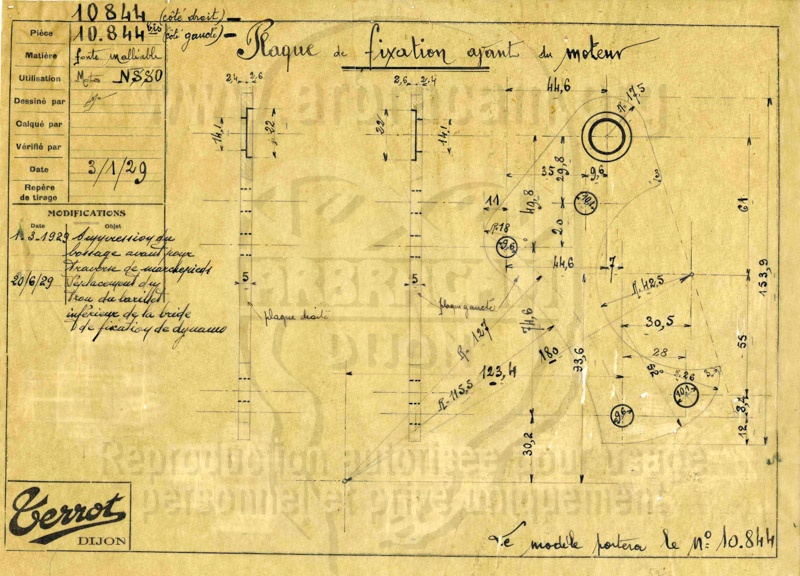 10844 (côté droit) –
Pièce 10.844 bis (côté gauche) –
Matière fonte malléable
Utilisation Moto NSSO
Dessiné par
Calqué par
Vérifié par
Date 3/1/29
Repère
de tirage
MODIFICATIONS
Date Objet
1.3.1929 Suppression du
bossage avant pour
traverse de marchepieds
20/6/29 Déplacement du
trou du taraudé
inférieur de la bride
de fixation de dynamo
Plaque de fixation avant du moteur
2,4 2,6
2,6 2,4
44,6
R.17,5
14,1
22
22
14,1
35
29,8
9,6
49,8
20
11
R.18
9,6
10,1
61
153,9
44,6
7
R.42,5
5
5
plaque droite
plaque gauche
74,6
R.127
30,5
180
93,6
28
55
123,4
R.115,5
R.26
10,1
9,6
8,4
12
30,2
Reproduction autorisée pour usage
personnel et privé uniquement
Terrot
DIJON
Le modèle portera le N° 10.844